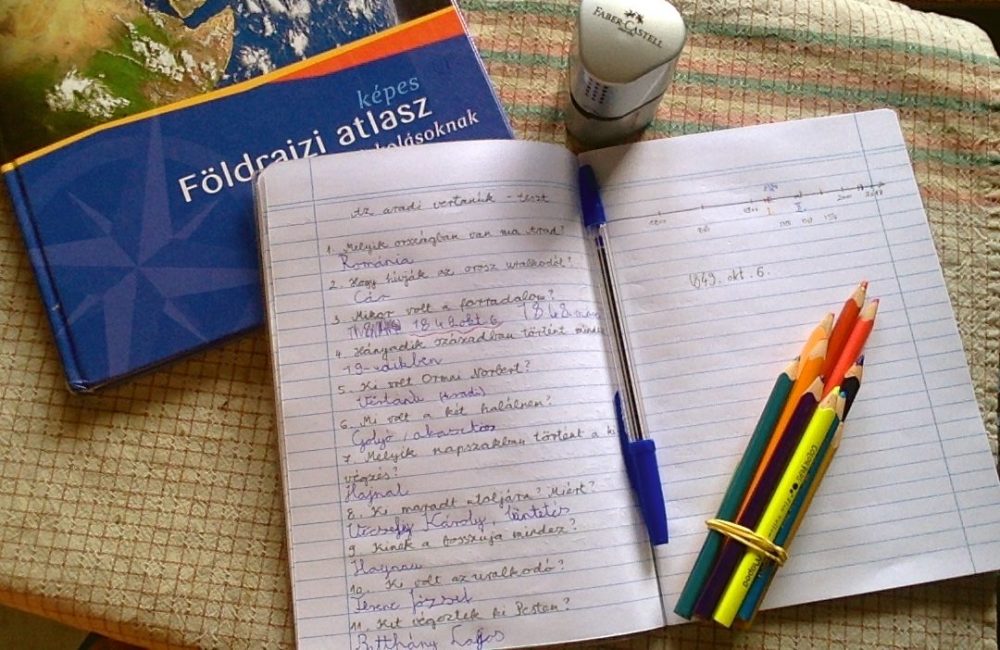 FABER-CASTELL
képes
Földrajzi atlasz
kolásoknak
Az aradi vértanúk - teszt
1. Melyik országban van ma Arad?
Románia
2. Hogy hívják az orosz uralkodót?
Cár
3. Mikor volt a forradalom?
1849 okt. 6. 1848
4. Hányadik században történt
19-dikben
5. Ki volt Ormai Norbert?
Vértanú (aradi)
6. Mi volt a két halálnem?
Golyó, akasztás
7. Melyik napszakban történt a ki
végzés?
Hajnal
8. Ki maradt utoljára? Miért?
Vécsey Károly, büntetés
9. Kinek a bosszúja mindez?
Haynau
10. Ki volt az uralkodó?
Ferenc József
11. Kit végeztek ki Pesten?
Batthány Lajos
1849. okt. 6.